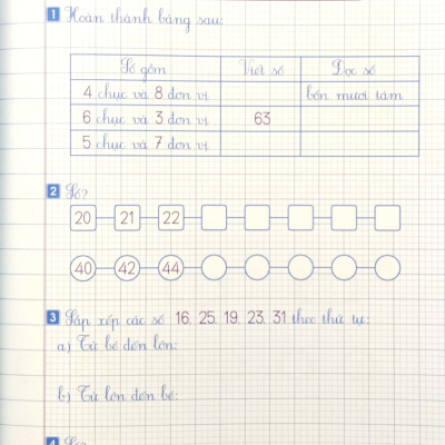 1 Hoàn thành bảng sau:
Số gồm Viết số Đọc số
4 chục và 8 đơn vị bốn mươi tám
6 chục và 3 đơn vị 63
5 chục và 7 đơn vị
2 Số?
20 21 22
40 42 44
3 Sắp xếp các số 16, 25, 19, 23, 31 theo thứ tự:
a) Từ bé đến lớn:
b) Từ lớn đến bé:
4